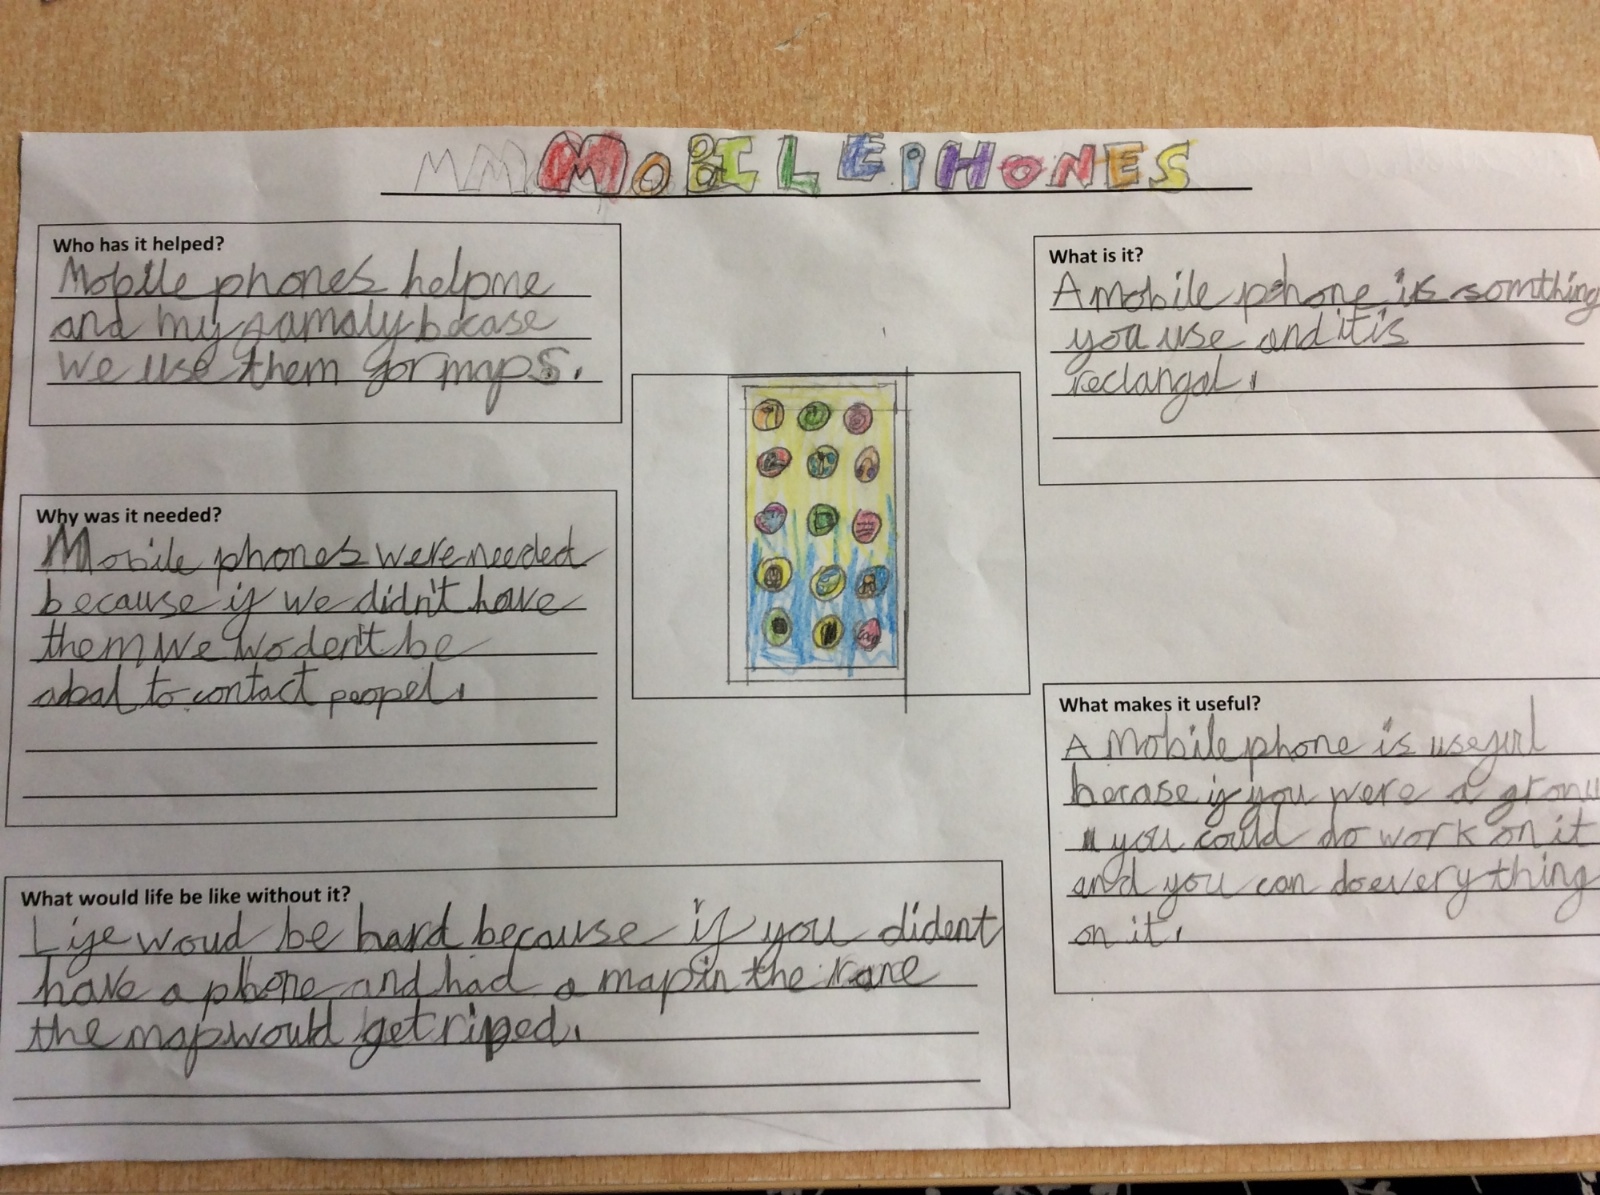 MOBILE PHONES
Who has it helped?
Mobile phones help me
and my famaly becase
we use them for maps.
What is it?
A mobile phone is somthing
you use and it is
reclangal.
Why was it needed?
Mobile phones were needed
because if we didn't have
them we woden't be
abal to contact peopel.
What makes it useful?
A Mobile phone is useful
becase if you were a
you could do work on it
and you can do everything
on it.
What would life be like without it?
Life woud be hard because if you dident
have a phone and had a map in the
the map would get riped.